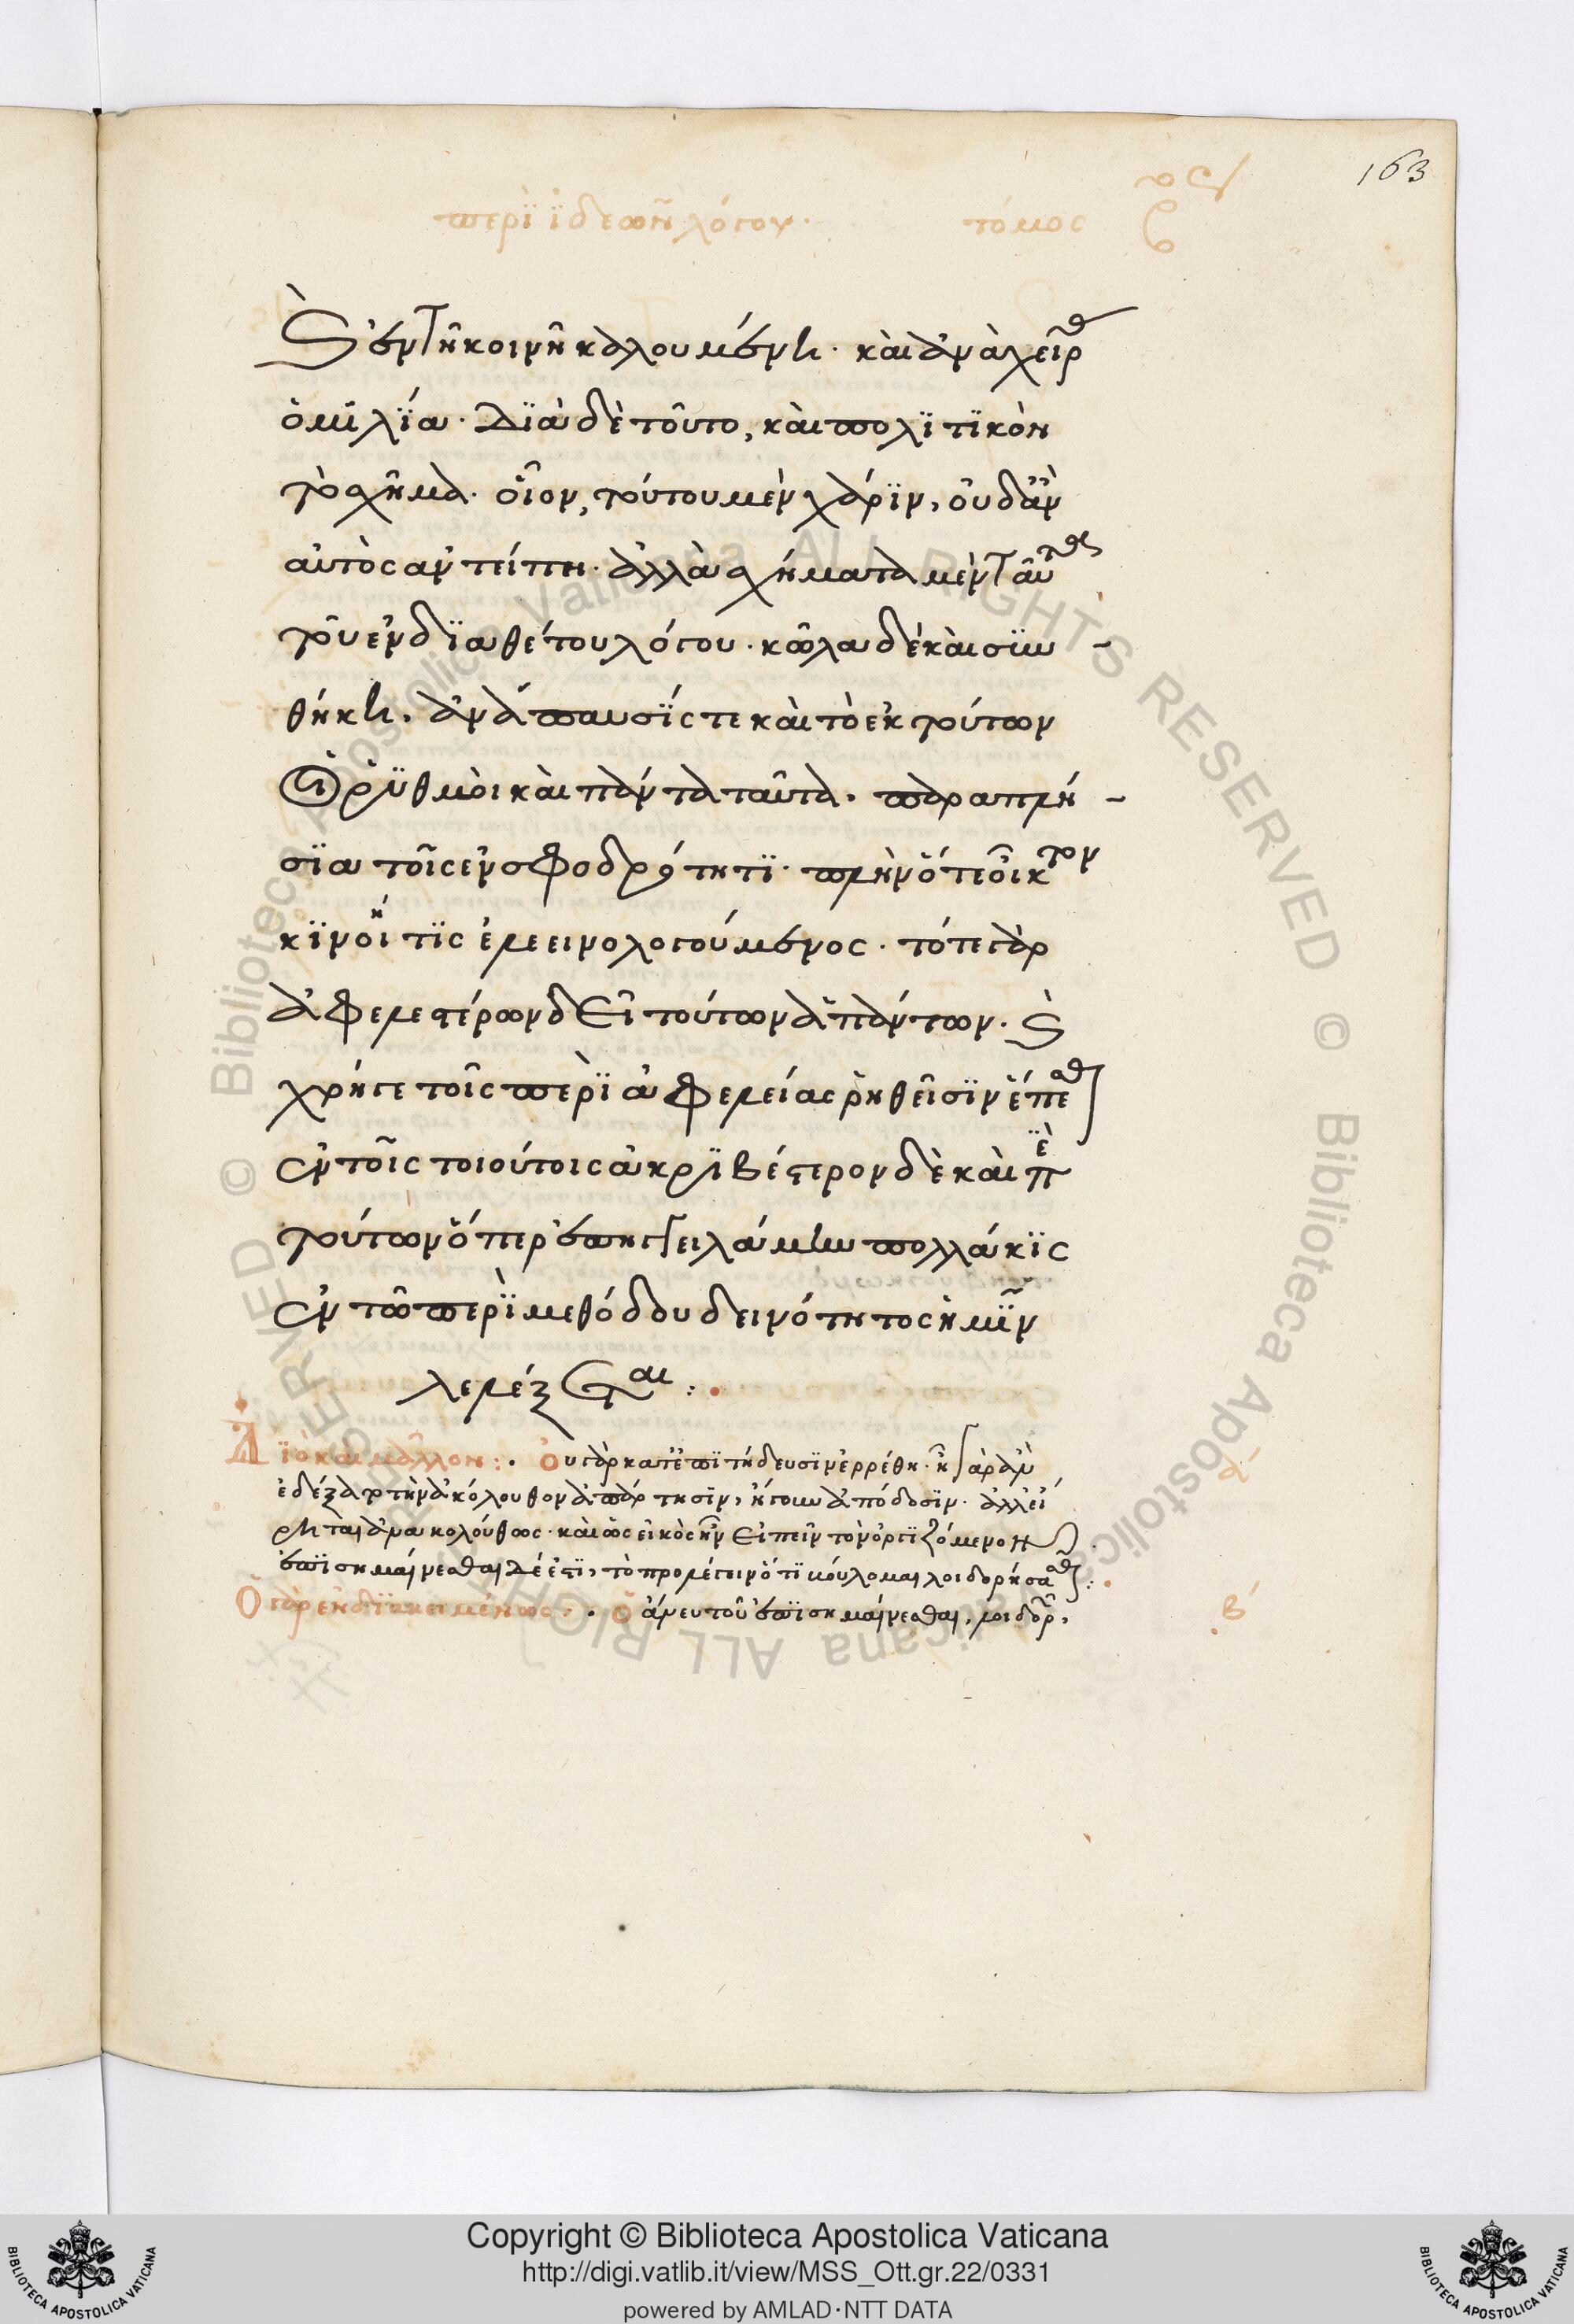 163
περὶ ἰδεῶν λόγου. τόμος
καὶ ἐν τῇ κοινῇ καλουμένη· καὶ ἀνὰ χεῖρα
ὁμιλία· Διὰ δὲ τοῦτο, καὶ πολιτικὸν
τὸ σχῆμα· οἷον, τούτου μὲν χάριν, οὐδ' ἂν
αὐτὸς ἀντείπη· ἀλλὰ σχήματα μὲν ταῦτα
τοῦ ἐνδιαθέτου λόγου· κῶλα δὲ καὶ συν-
θήκη, ἀνάπαυσίς τε καὶ τὸ ἐκ τούτων
ῥυθμοὶ καὶ πάντα ταῦτα, παραπλή-
σια τοῖς ἐν σφοδρότητι· πλὴν ὅτε οἶκτον
κινοίη τις ἐλεεινολογούμενος· τότε γὰρ
ἀφελεστέρων δεῖ τούτων ἁπάντων· καὶ
χρῆται τοῖς περὶ ἀφελείας ῥηθεῖσιν
ἐν τοῖς τοιούτοις ἀκριβέστερον δὲ καὶ περὶ
τούτων ὅπερ ἐπηγγειλάμην πολλάκις
ἐν τῶ περὶ μεθόδου δεινότητος ἡμῖν
λελέξεται:
Διὸ καὶ μᾶλλον: οὐ γὰρ κατ' ἐπιτήδευσιν ἐρρέθη· ἢ γὰρ ἂν
ἐδέξατο τὴν ἀκόλουθον ἀπάρτησιν, ἤτοι ἀπόδοσιν· ἀλλ' εἴ-
ρηται ἀνακολούθως· καὶ ὡς εἰκὸς ἦν εἰπεῖν τὸν ὀργιζόμενον
ἐπισημαίνεσθαι δέ ἐστι, τὸ προλέγειν ὅτι βούλομαι λοιδορήσασθαι:
Ὁ γὰρ ἐνδιακειμένως: ὁ ἄνευ τοῦ ἐπισημαίνεσθαι, λοιδορ,
α
β
Copyright © Biblioteca Apostolica Vaticana
http://digi.vatlib.it/view/MSS_Ott.gr.22/0331
powered by AMLAD·NTT DATA
BIBLIOTECA APOSTOLICA VATICANA
BIBLIOTECA APOSTOLICA VATICANA